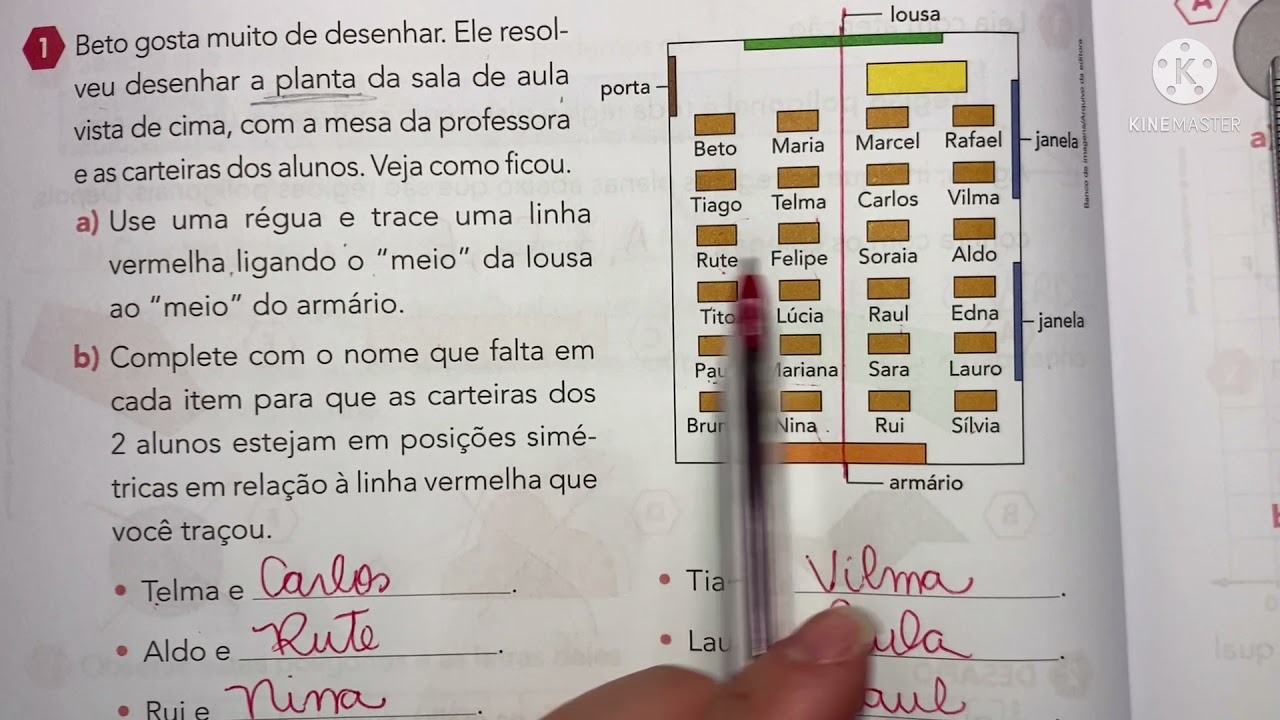 1 Beto gosta muito de desenhar. Ele resol-
veu desenhar a planta da sala de aula
vista de cima, com a mesa da professora
e as carteiras dos alunos. Veja como ficou.
a) Use uma régua e trace uma linha
vermelha ligando o “meio” da lousa
ao “meio” do armário.
b) Complete com o nome que falta em
cada item para que as carteiras dos
2 alunos estejam em posições simé-
tricas em relação à linha vermelha que
você traçou.
• Telma e Carlos.
• Aldo e Rute.
• Rui e Nina.
• Tia Vilma.
• Lau aula.
aul
lousa
porta
janela
janela
armário
Beto Maria Marcel Rafael
Tiago Telma Carlos Vilma
Rute Felipe Soraia Aldo
Tito Lúcia Raul Edna
Pau ariana Sara Lauro
Brun Nina Rui Sílvia
Banco de imagens/Arquivo da editora
KINEMASTER
K
A
a)